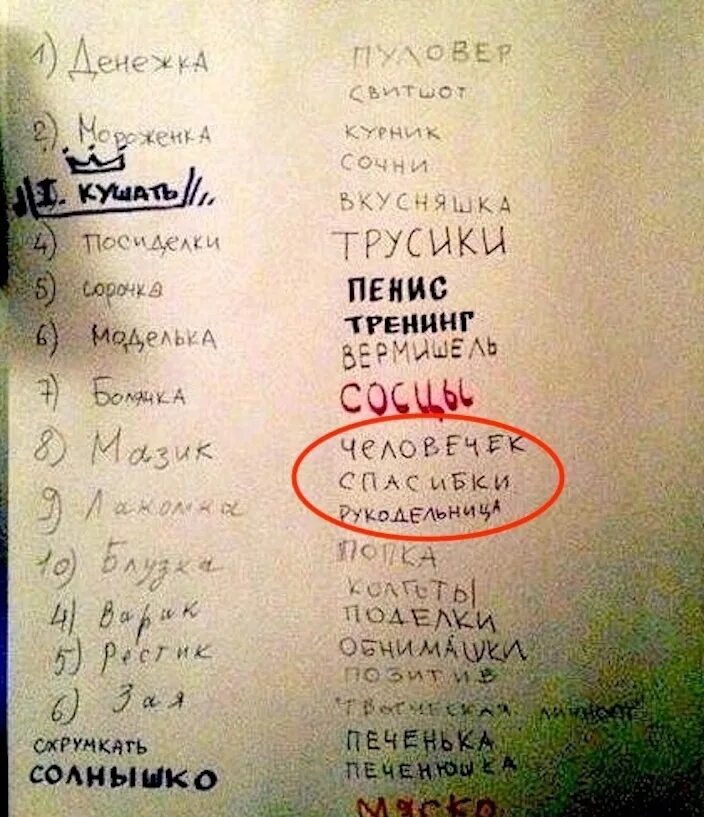 1) Денежка
2) Мороженка
I. КУШАТЬ
4) Посиделки
5) сорочка
6) Моделька
7) Болячка
8) Мазик
9) Лакомка
10) Блузка
4) Варик
5) Рестик
6) Зая
СХРУМКАТЬ
СОЛНЫШКО
ПУЛОВЕР
СВИТШОТ
КУРНИК
СОЧНИ
ВКУСНЯШКА
ТРУСИКИ
ПЕНИС
ТРЕНИНГ
ВЕРМИШЕЛЬ
СОСЦЫ
ЧЕЛОВЕЧЕК
СПАСИБКИ
РУКОДЕЛЬНИЦА
ПОПКА
КОЛГОТЫ
ПОДЕЛКИ
ОБНИМАШКИ
ПОЗИТИВ
ТВОРЧЕСКАЯ ЛИЧНОСТЬ
ПЕЧЕНЬКА
ПЕЧЕНЮШКА
МЯСКО